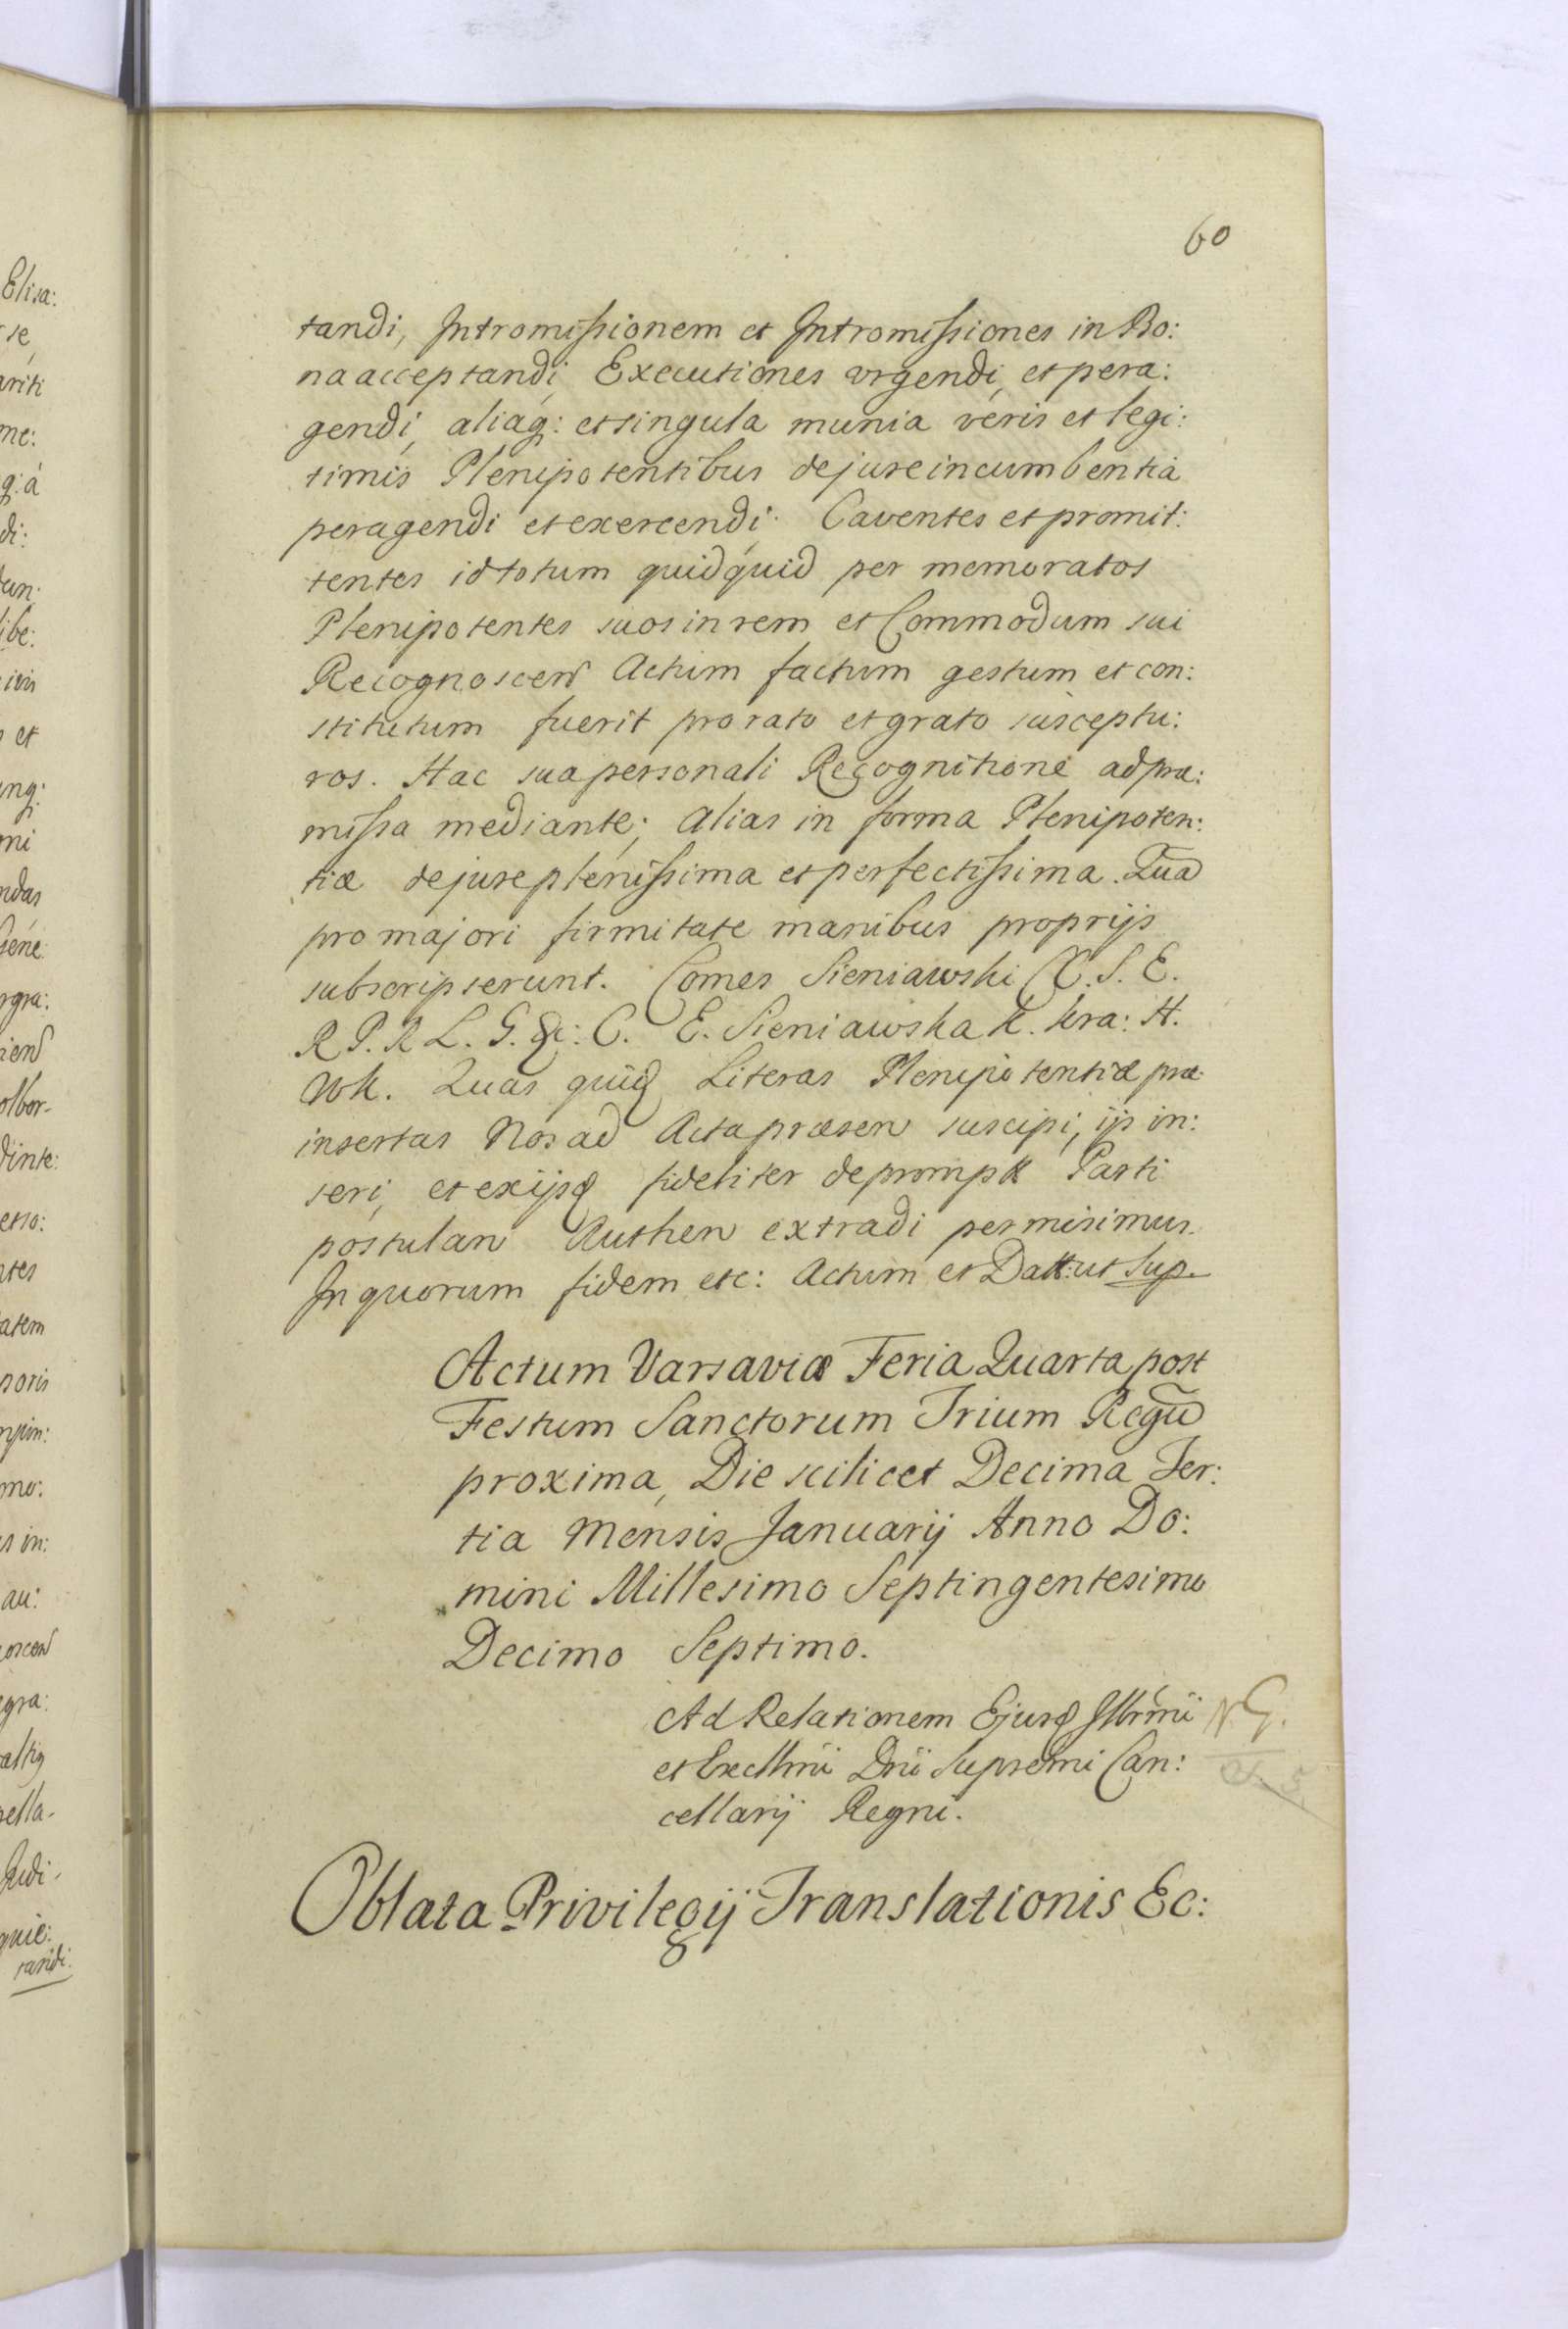 60
tandi, Intromissionem et Intromissiones in Bo:
na acceptandi, Executiones urgendi, et pera:
gendi, aliaq: et singula munia veris et legi:
timis Plenipotentibus de jure incumbentia
peragendi et exercendi. Caventes et promit:
tentes id totum quidquid per memoratos
Plenipotentes suos in rem et Commodum sui
Recognoscen Actum factum gestum et con:
stitutum fuerit pro rato et grato susceptu:
ros. Hac sua personali Recognitione ad præ:
missa mediante; Alias in forma Plenipoten:
tiæ de jure plenissima et perfectissima. Qua
pro majori firmitate manibus proprijs
subscripserunt. Comes Sieniawski C. S. E.
R P. R L. G. &c: C. E. Sieniawska K. Kra: H.
WK. Quas quiq Literas Plenipotentiæ præ
insertas Nos ad Acta præsen suscipi, ijs in:
seri, et ex ijsq fideliter deprompt Parti
postulan Authen extradi permisimus.
In quorum fidem etc: Actum et Datt: ut Sup.
Actum Varsaviæ Feria Quarta post
Festum Sanctorum Trium Regū
proxima, Die scilicet Decima Ter:
tia Mensis Januarij Anno Do:
mini Millesimo Septingentesimo
Decimo Septimo.
Ad Relationem Ejusq Illrmi
et Excllmi Dni Supremi Can:
cellarij Regni.
N. G.
Oblata Privilegij Translationis Ec:
Elisa:
se,
ariti
me:
q: a
di:
ibe:
et
mi
ndas
Gene:
rgra:
dinte:
etso:
ntes
atem
noris
mo:
s in:
au:
egra:
pella-
Judi-
quie:
randi.